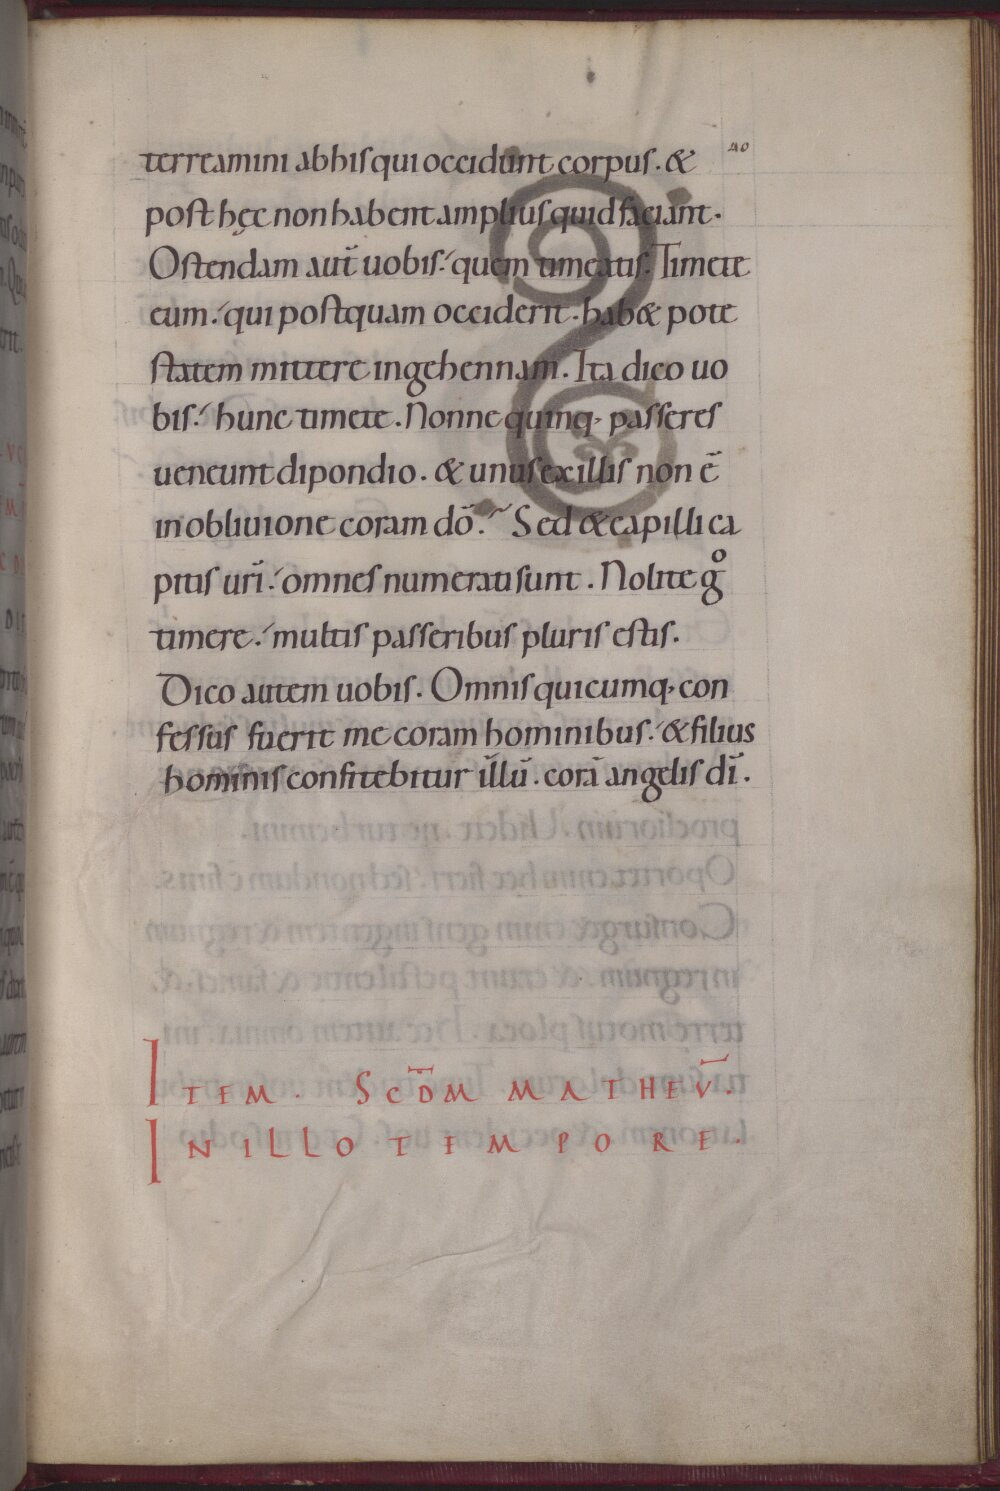 40
terreamini abhis qui occidunt corpus. &
post hęc non habent amplius quid faciant.
Ostendam aut̄ uobis: quem timeatis. Timete
eum: qui postquam occiderit. hab& pote
statem mittere in gehennam. Ita dico uo
bis: hunc timete. Nonne quinq; passeres
ueneunt dipondio. & unus ex illis non ē
in obliuione coram dō: Sed & capilli ca
pitis ur̄i: omnes numerati sunt. Nolite gͦ
timere: multis passeribus pluris estis.
Dico autem uobis. Omnis quicumq; con
fessus fuerit me coram hominibus: & filius
hominis confitebitur illū. corā angelis dī.
ITEM. SCD̄M MATHEV̄.
IN ILLO TEMPORE.